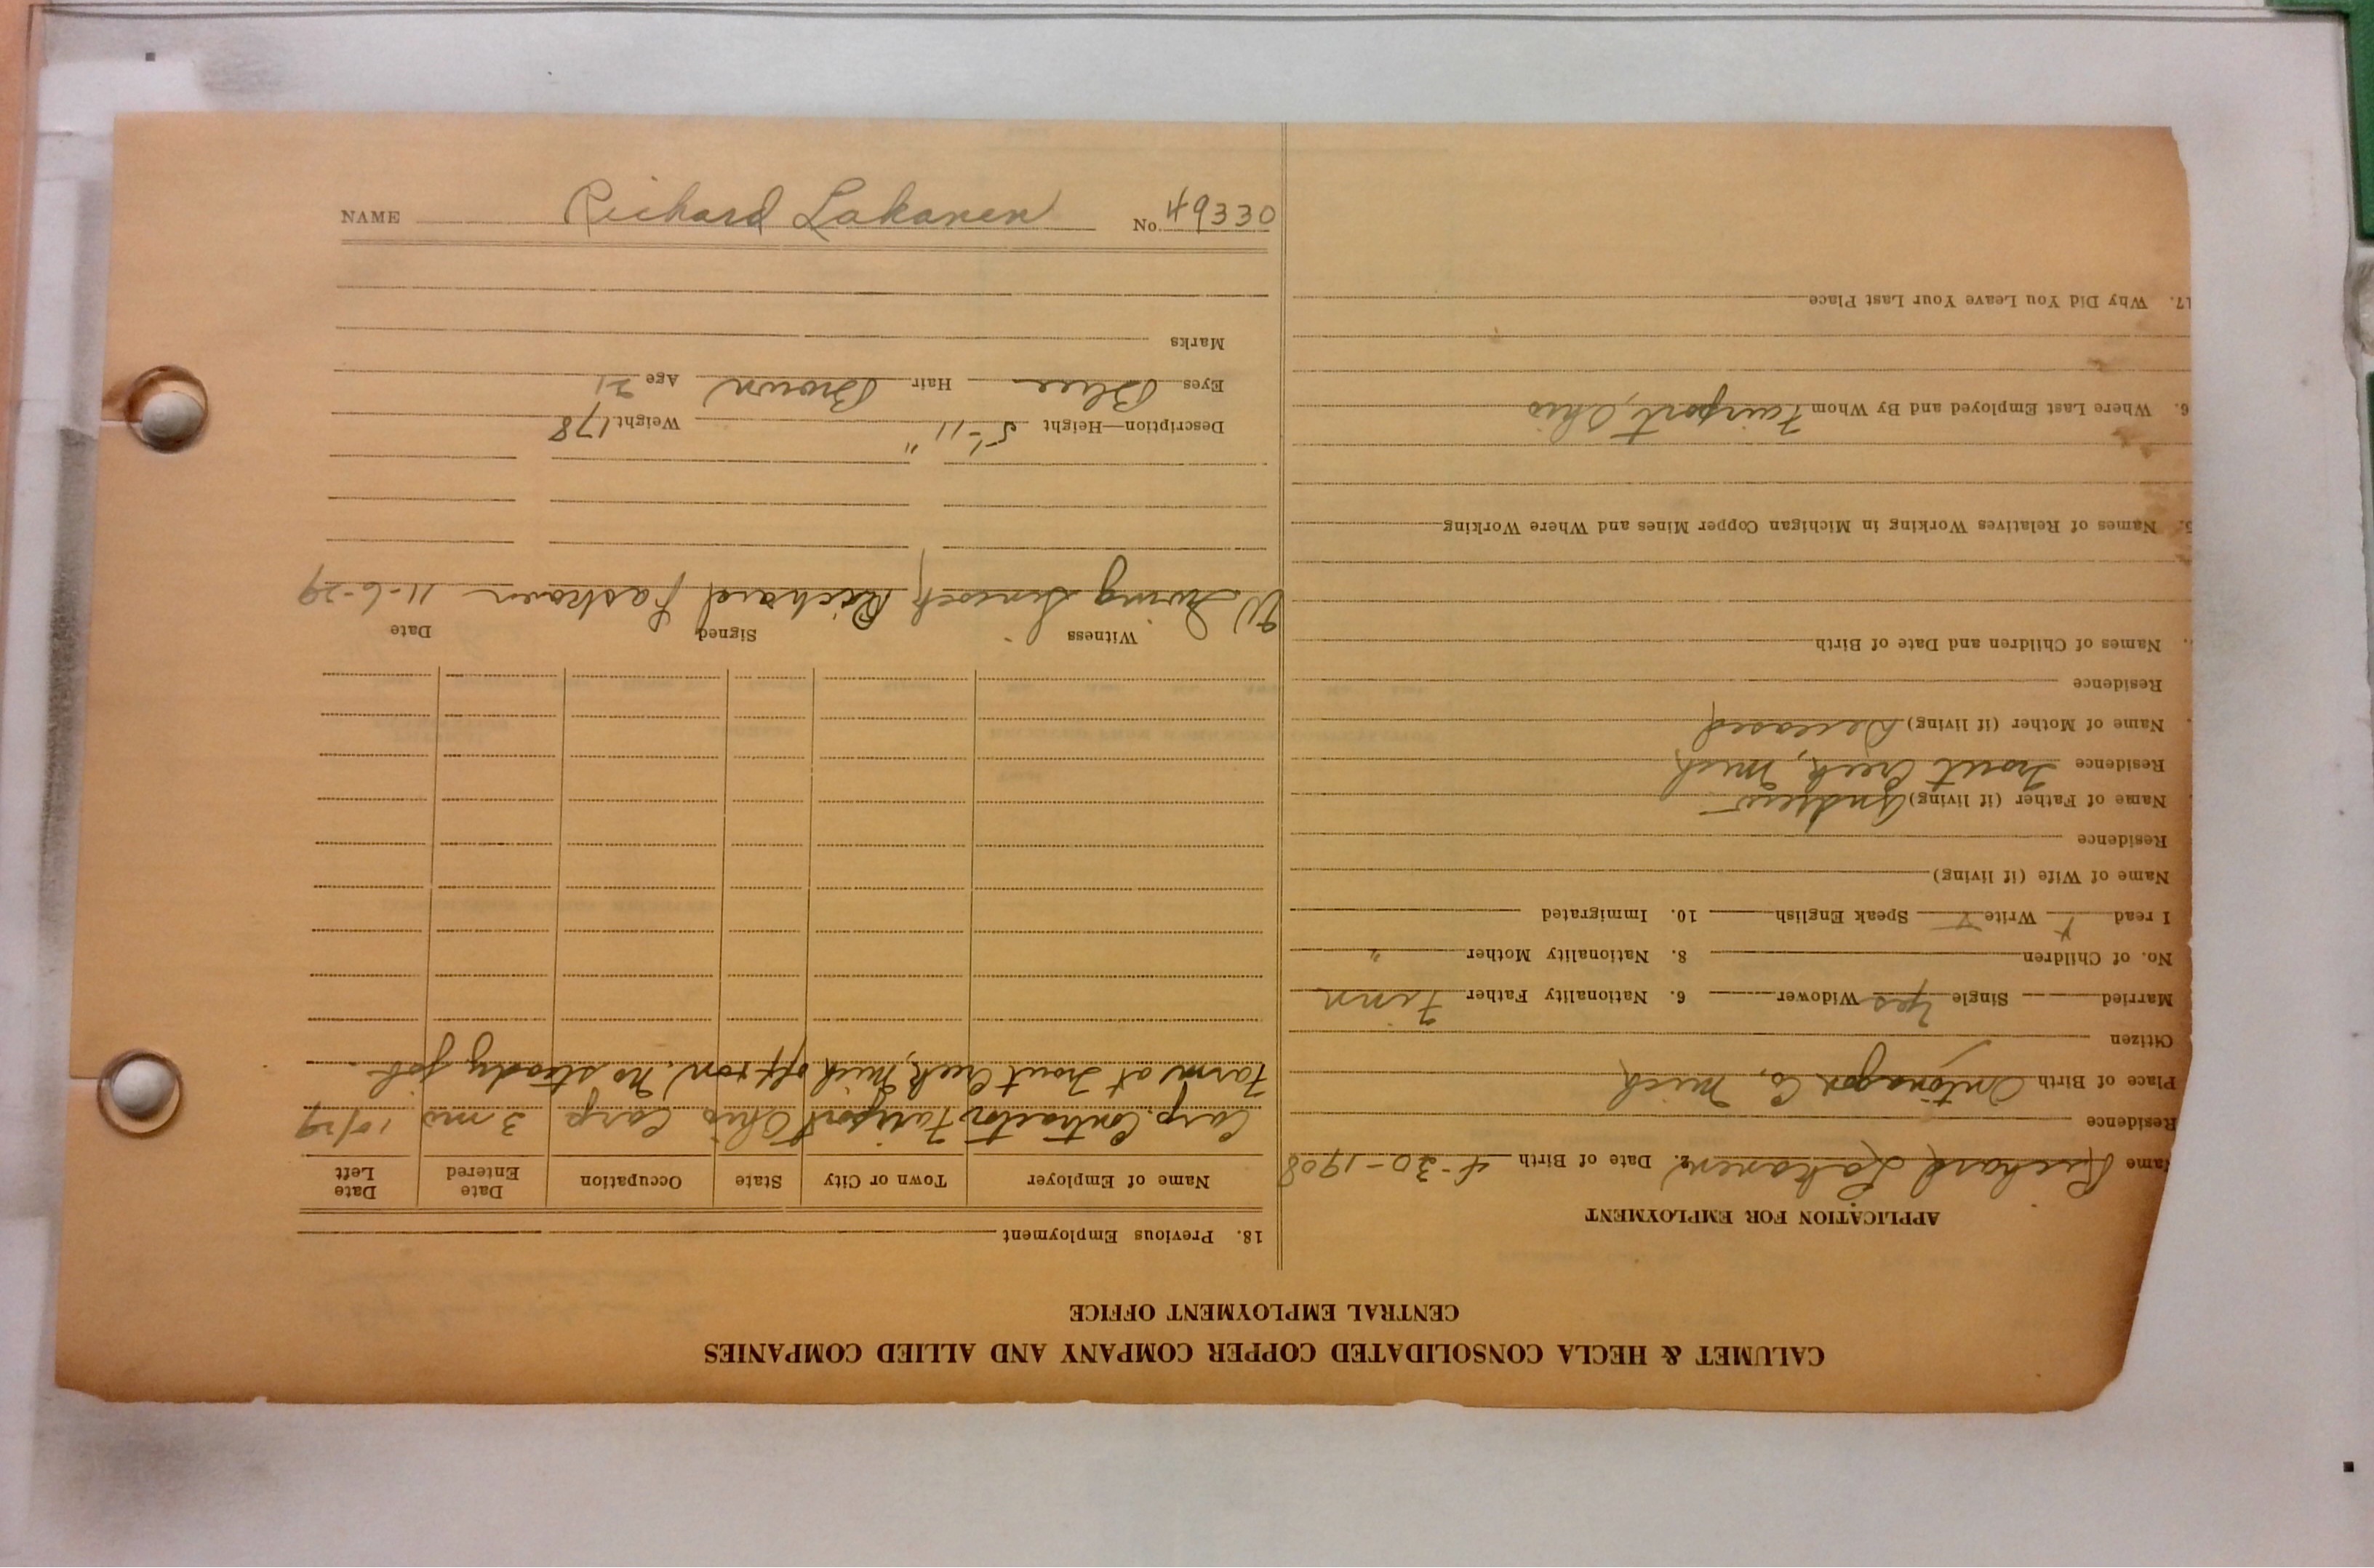 CALUMET & HECLA CONSOLIDATED COPPER COMPANY AND ALLIED COMPANIES
CENTRAL EMPLOYMENT OFFICE
APPLICATION FOR EMPLOYMENT
Name Richard Lakanen 2. Date of Birth 4-30-1908
Residence
Place of Birth Ontonagon Co, Mich
Citizen
Married Single Yes Widower 6. Nationality Father Finn
No. of Children 8. Nationality Mother "
I read Write Speak English 10. Immigrated
Name of Wife (if living)
Residence
Name of Father (if living) Andrew
Residence Trout Creek, Mich
Name of Mother (if living) Deceased
Residence
Names of Children and Date of Birth
Names of Relatives Working in Michigan Copper Mines and Where Working
6. Where Last Employed and By Whom Fairport, Ohio
17. Why Did You Leave Your Last Place
18. Previous Employment
Name of Employer Town or City State Occupation Date Entered Date Left
Carp. Contractor Fairport Ohio Carp 3 mo 10/29
Farm at Trout Creek, Mich off & on, no steady job
Witness Signed Date
Richard Laskanen 11-6-29
Description—Height 5'-11" Weight 178
Eyes Blue Hair Brown Age 21
Marks
NAME Richard Lakanen No. 49330